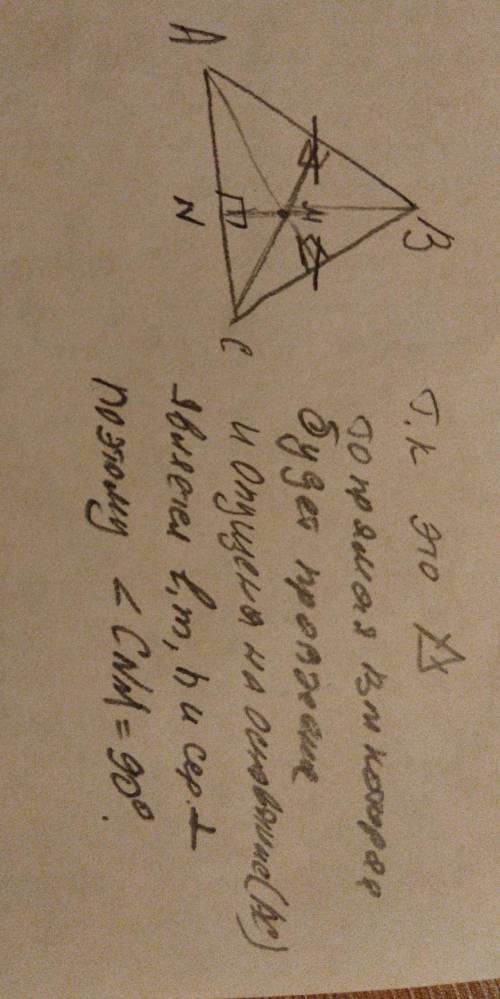 A
B
M
N
C
Т.к это △
то прямая из M которая
будет проведена
и опущена на основание (AC)
является l, m, h и сер. ⊥
поэтому < CNM = 90°.